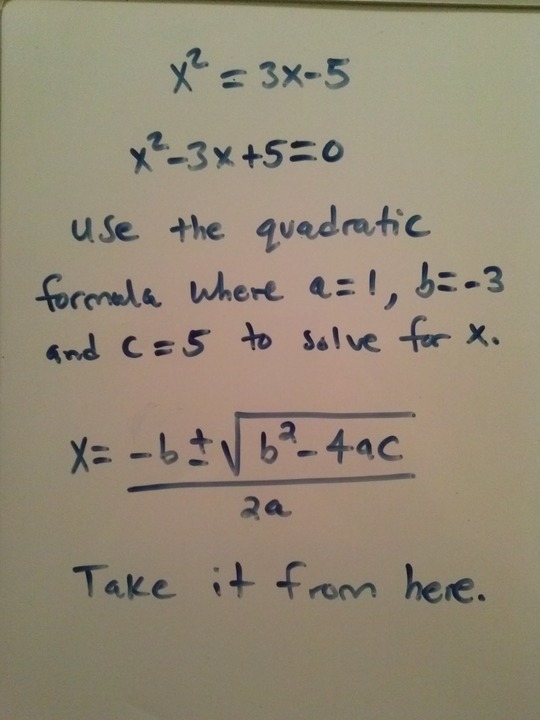 x² = 3x-5
x²-3x+5=0
use the quadratic
formula where a=1, b=-3
and c=5 to solve for x.
x= -b±√b²-4ac
2a
Take it from here.